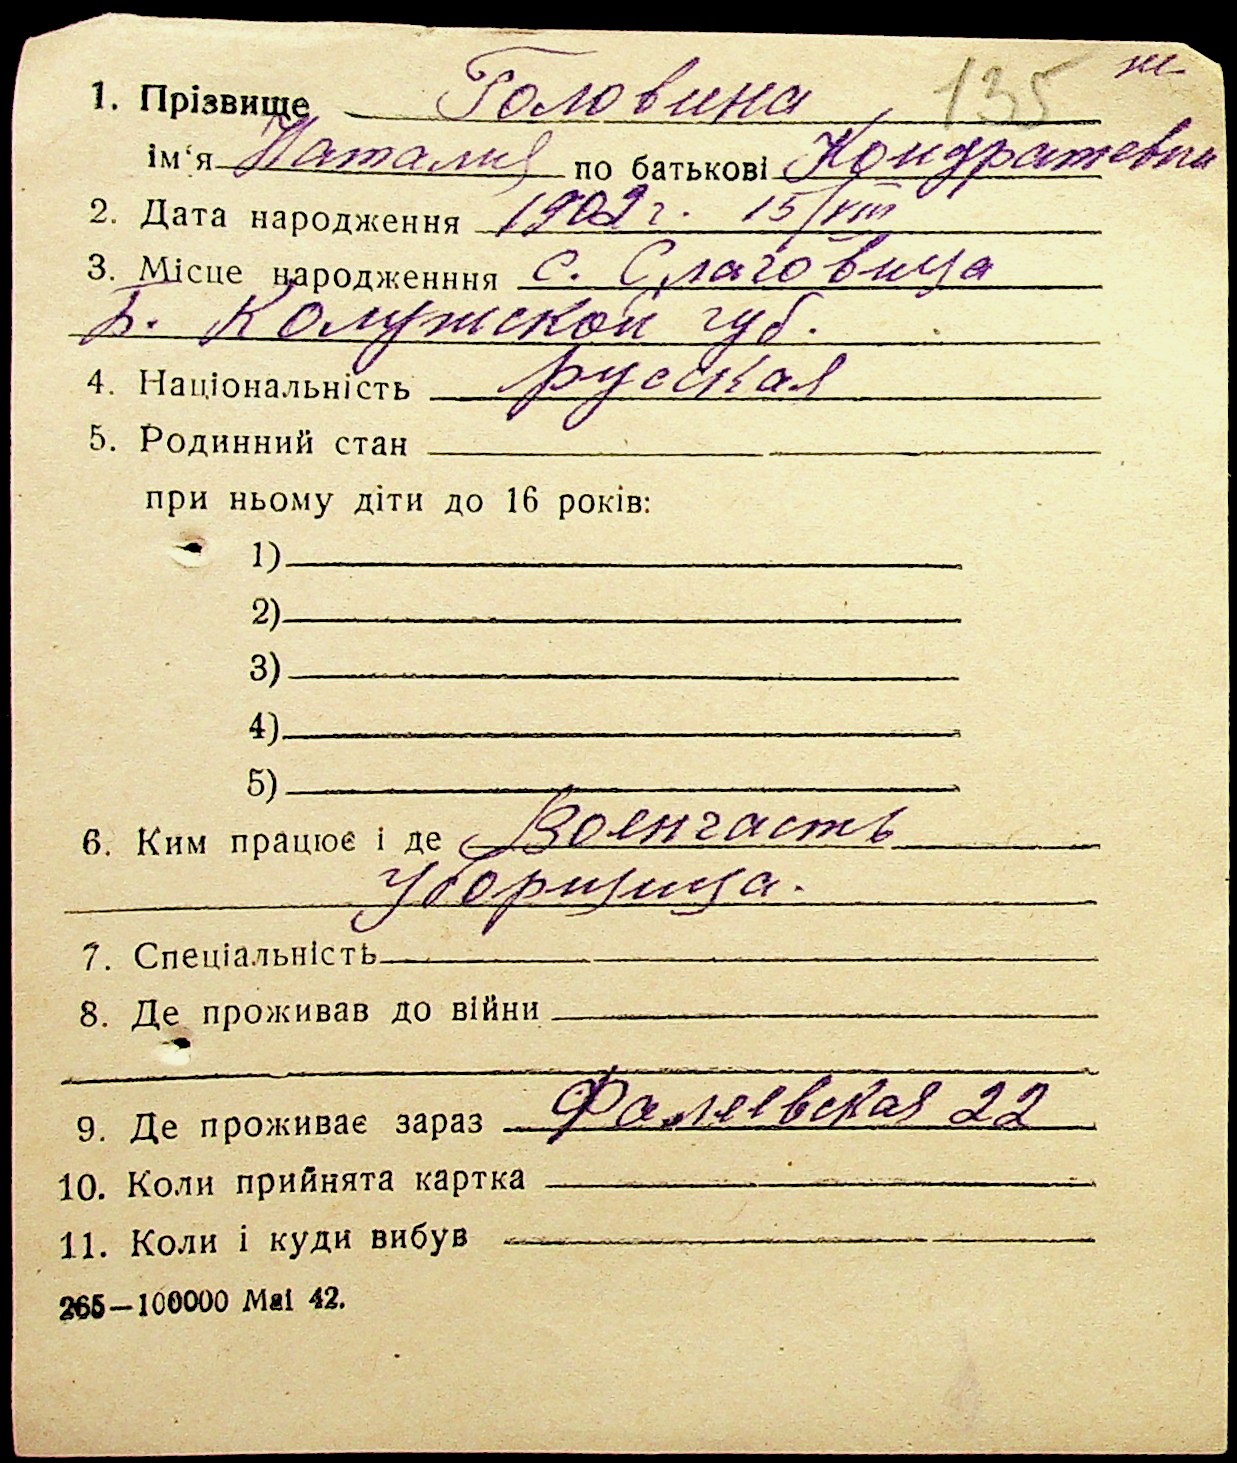 135 ж
1. Прізвище Головина
ім‘я Наталия по батькові Кондратевна
2. Дата народження 1902 г. 15/VIII
3. Місце народженння с. Слаговища
б. Колужской губ.
4. Національність русская
5. Родинний стан
при ньому діти до 16 років:
1)
2)
3)
4)
5)
6. Ким працює і де Военчасть
уборщица.
7. Спеціальність
8. Де проживав до війни
9. Де проживає зараз Фалеевская 22
10. Коли прийнята картка
11. Коли і куди вибув
265—100000 Mai 42.